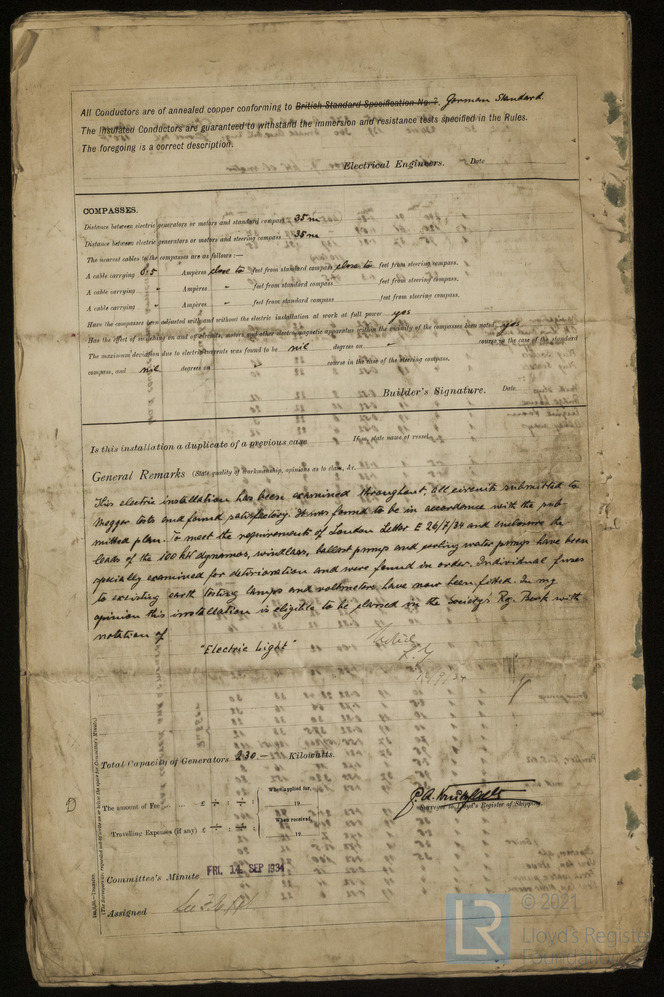 All Conductors are of annealed copper conforming to British Standard Specification No. 7. German Standard.
The Insulated Conductors are guaranteed to withstand the immersion and resistance tests specified in the Rules.
The foregoing is a correct description.
Electrical Engineers. Date
COMPASSES.
Distance between electric generators or motors and standard compass 35 m
Distance between electric generators or motors and steering compass 35 m
The nearest cables to the compasses are as follows:—
A cable carrying 0.5 Amperes close to feet from standard compass close to feet from steering compass.
A cable carrying " Amperes " feet from standard compass feet from steering compass.
A cable carrying " Amperes " feet from standard compass feet from steering compass.
Have the compasses been adjusted with and without the electric installation at work at full power yes
Has the effect of switching on and off circuits, motors and other electro-magnetic apparatus within the vicinity of the compasses been noted yes
The maximum deviation due to electric currents was found to be nil degrees on - course in the case of the standard
compass, and nil degrees on course in the case of the steering compass.
Builder's Signature. Date
Is this installation a duplicate of a previous case If so, state name of vessel
General Remarks (State quality of workmanship, opinions as to class, &c.
This electric installation has been examined throughout, all circuits submitted to
megger tests and found satisfactory. It was found to be in accordance with the sub-
mitted plan. To meet the requirements of London Letter E 26/7/34 and enclosure the
leads of the 100 kW dynamos, windlass, ballast pumps and cooling water pumps have been
specially examined for deterioration and were found in order. Individual fuses
to existing earth testing lamps and voltmeters have now been fitted. In my
opinion this installation is eligible to be placed in the Society's Reg. Book with
notation of
"Electric Light"
Total Capacity of Generators 230.— Kilowatts.
The amount of Fee ... £ : : When applied for, 19
Travelling Expenses (if any) £ : : When received, 19
Surveyor to Lloyd's Register of Shipping.
Committee's Minute FRI. 14 SEP 1934
Assigned
LR © 2021
Lloyd's Register
Foundation